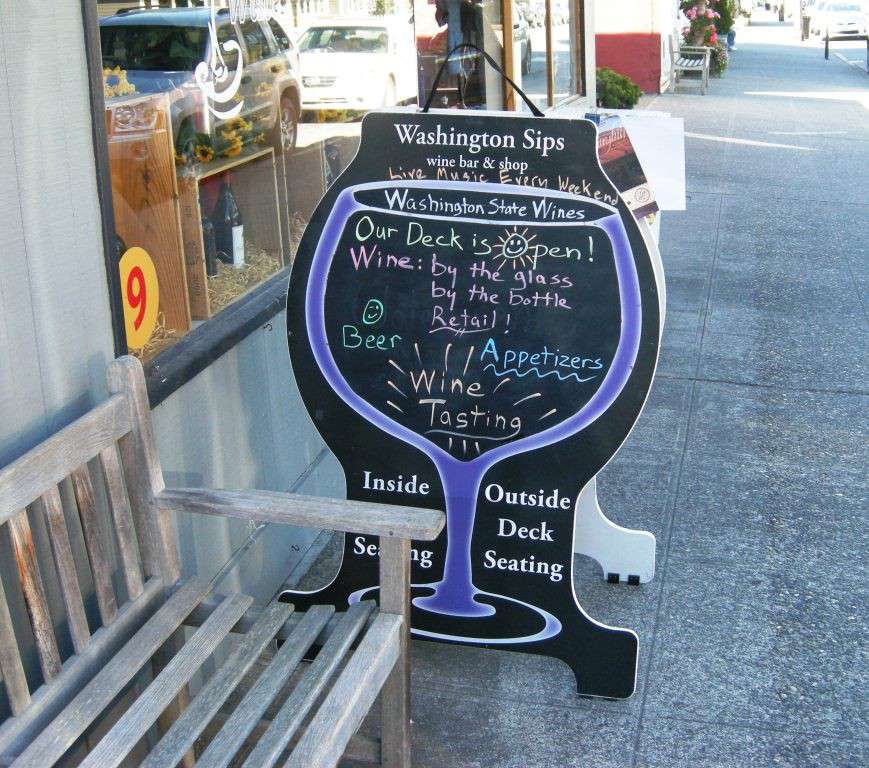 Washington Sips
wine bar & shop
Live Music Every Weekend
Washington State Wines
Our Deck is Open!
Wine: by the glass
by the bottle
Retail!
Beer
Appetizers
Wine
Tasting
Inside
Seating
Outside
Deck
Seating
9